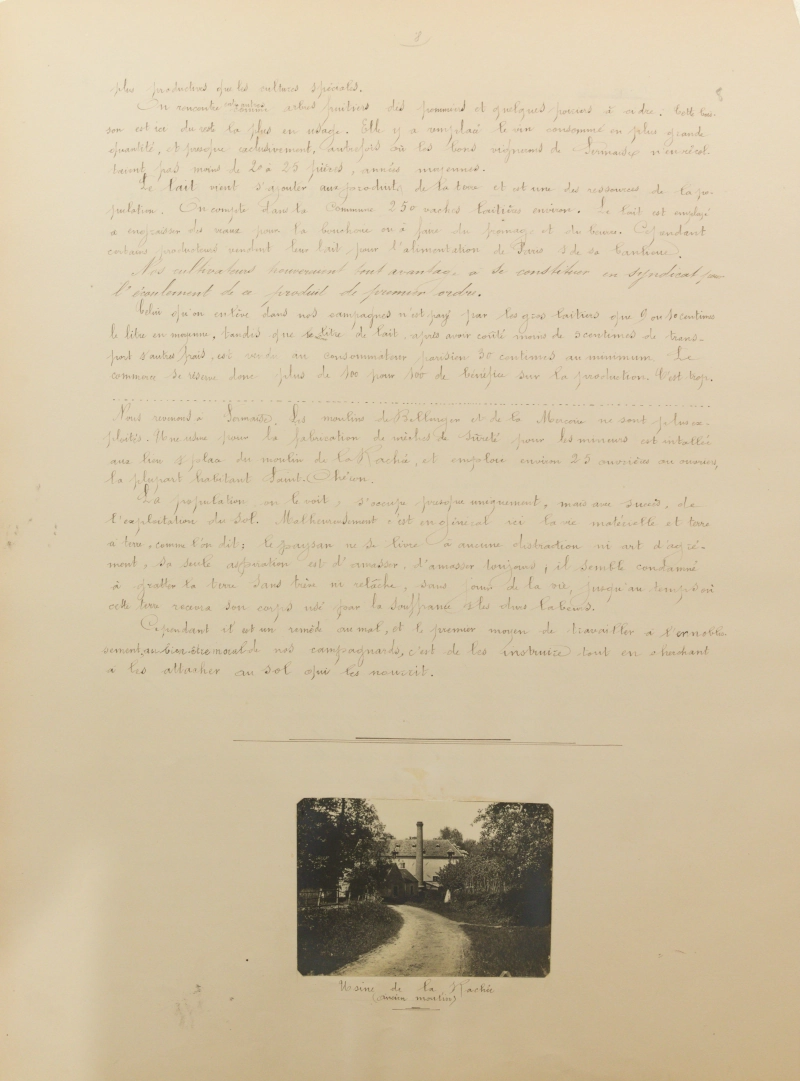 8
8
plus productives que les cultures spéciales.
On rencontre comme arbres fruitiers des pommiers et quelques poiriers à cidre. Cette bois-
son est ici du reste la plus en usage. Elle y a remplacé le vin consommé en plus grande
quantité, et presque exclusivement, autrefois où les bons vignerons de Sermaise n'encavet-
taient pas moins de 20 à 25 pièces, années moyennes.
Le lait vient s'ajouter aux produits de la terre et est une des ressources de la po-
pulation. On compte dans la Commune 250 vaches laitières environ. Le lait est employé
à engraisser des veaux pour la boucherie ou à faire du fromage et du beurre. Cependant
certains producteurs vendent leur lait pour l'alimentation de Paris & de sa banlieue.
Nos cultivateurs trouveraient tout avantage à se constituer en syndicat pour
l'écoulement de ce produit de premier ordre.
Celui qu'on enlève dans nos campagnes n'est payé par les gros laitiers que 9 ou 10 centimes
le litre en moyenne, tandis que le Litre de lait, après avoir coûté moins de 5 centimes de trans-
port & autres frais, est vendu au consommateur parisien 30 centimes au minimum. Le
commerce se réserve donc plus de 100 pour 100 de bénéfice sur la production. C'est trop.
Nous revenons à Sermaise. Les moulins de Bellanger et de la Mercerie ne sont plus ex-
ploités. Une usine pour la fabrication de mèches de sûreté pour les mineurs est installée
aux lieu & place du moulin de la Rachée, et emploie environ 25 ouvrières ou ouvriers,
la plupart habitant Saint-Chéron.
La population, on le voit, s'occupe presque uniquement, mais avec succès, de
l'exploitation du sol. Malheureusement, c'est en général ici la vie matérielle et terre
à terre, comme l'on dit: le paysan ne se livre à aucune distraction ni art d'agré-
ment, sa seule aspiration est d'amasser, d'amasser toujours; il semble condamné
à gratter la terre sans trêve ni relâche, sans jouir de la vie, jusqu'au temps où
cette terre recevra son corps usé par la souffrance & les durs labeurs.
Cependant il est un remède au mal, et le premier moyen de travailler à l'ennoblis-
sement, au bien-être moral de nos campagnards, c'est de les instruire tout en cherchant
à les attacher au sol qui les nourrit.
Usine de la Rachée
(ancien moulin)